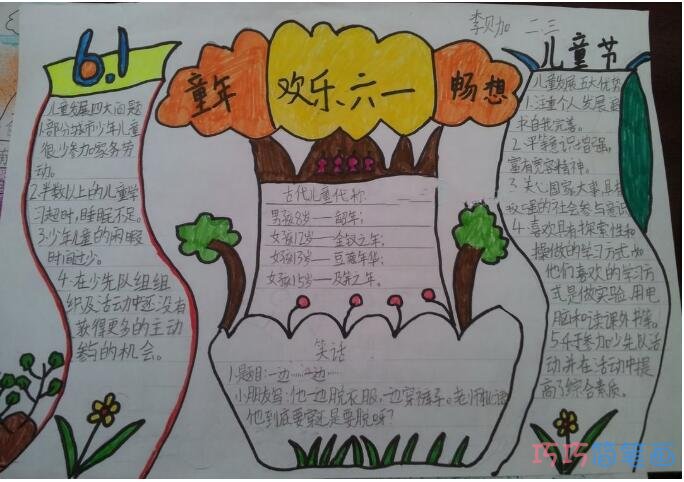 李贝加 二三
6.1
童年 欢乐六一 畅想
儿童节
儿童发展四大问题
1.部分城市少年儿童
很少参加家务劳
动。
2.半数以上的儿童学
习超时,睡眠不足。
3.少年儿童的闲暇
时间过少。
4.在少先队组组
织及活动中还没有
获得更多的主动
参与的机会。
古代儿童代称
男孩8岁——韶年;
女孩12岁——金钗之年;
女孩13岁——豆蔻年华;
女孩15岁——及笄之年。
笑话
1.题目:一边……一边……
小朋友写:他一边脱衣服,一边穿裤子。老师批语
他到底要穿还是要脱呀?
儿童发展五大优势
1.注重个人发展
求自我完善。
2.平等意识增强,
富有宽容精神。
3.关心国家大事,具有
的社会参与意识
4.喜欢具有探索性和
操做的学习方式如
他们喜欢的学习方
式是做实验、用电
脑和读课外书等。
5.参加少年队活
动并在活动中提
高了综合素质。
巧巧简笔画